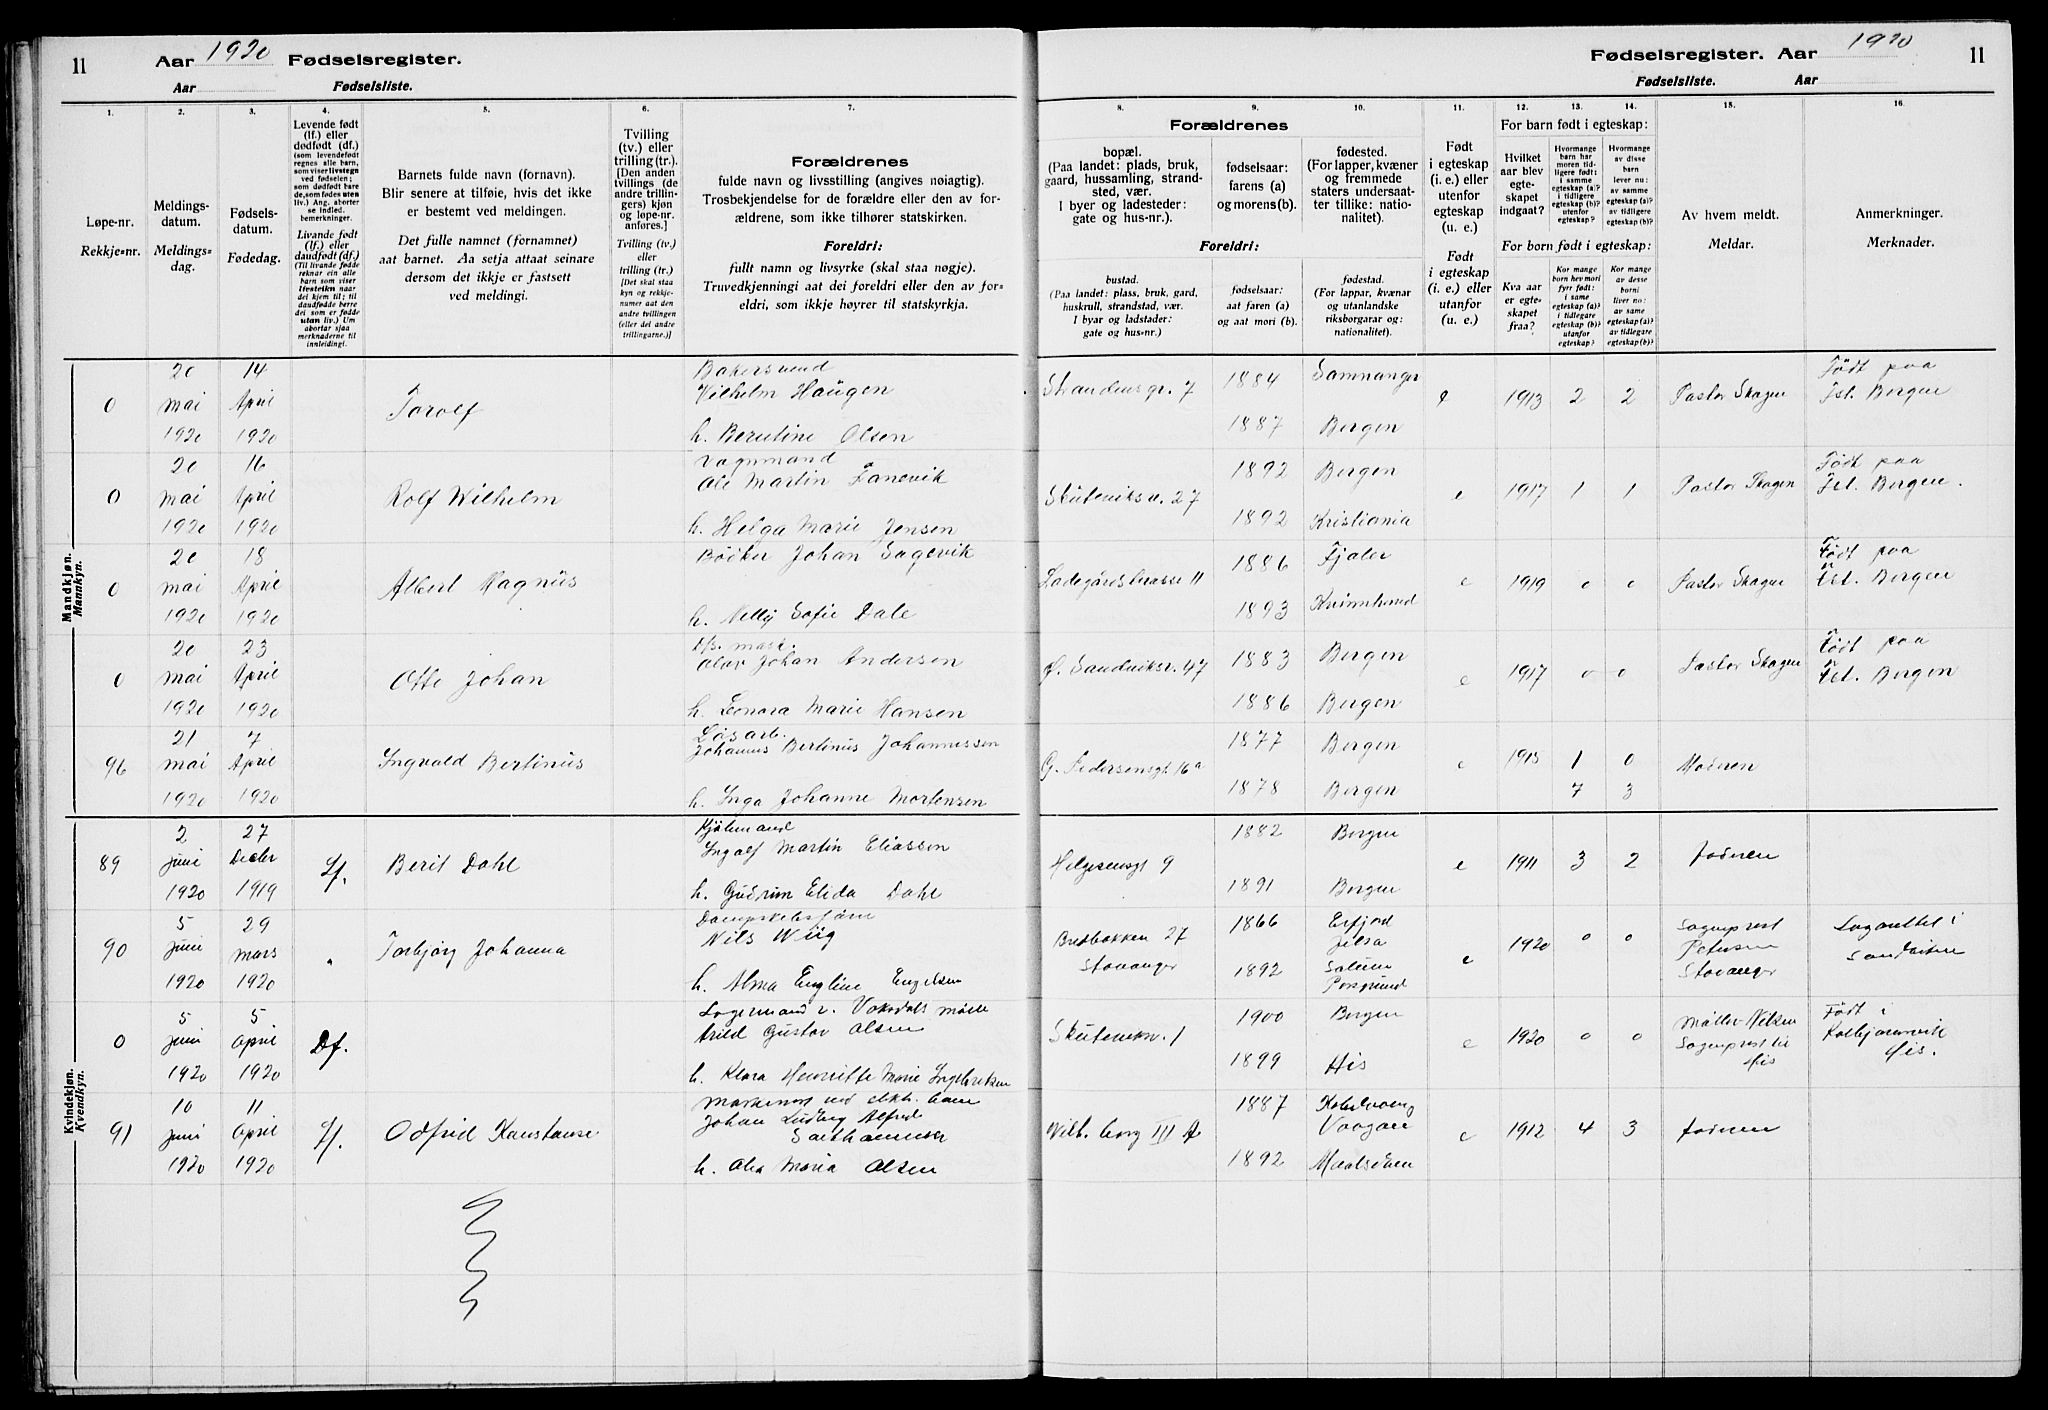 11
Aar 1920 Fødselsregister.
Aar Fødselsliste.
1.
Løpe-nr.
Rekkje-nr.
2.
Meldings-
datum.
Meldings-
dag.
3.
Fødsels-
datum.
Fødedag.
4.
Levende født
(lf.) eller
dødfødt (df.)
(som levendefødt
regnes alle barn,
som viser livstegn
ved fødselen;
som dødfødt bare
de, som fødes uten
liv.) Ang. aborter
se indled.
bemerkninger.
Livande født
(lf.) eller
daudfødt (df.)
(Til livande fødde
reknar ein alle
barn som viser
livsteikn naar
dei kjem til; til
daudfødde berre
dei som er fødde
utan liv.) Um
abortar sjaa
merknaderne til
innleidingi.
5.
Barnets fulde navn (fornavn).
Blir senere at tilføie, hvis det ikke
er bestemt ved meldingen.
Det fulle namnet (fornamnet)
aat barnet. Aa setja attaat seinare
dersom det ikkje er fastsett
ved meldingi.
6.
Tvilling
(tv.) eller
trilling (tr.)
[Den anden
tvillings (de
andre trillin-
gers) kjøn
og løpe-nr.
anføres.]
Tvilling (tv.)
eller
trilling (tr.)
[Det skal staa
kyn og rekkje-
numer aat den
andre tvillingen
(eller dei andre
trillingarne.)]
7.
Forældrenes
fulde navn og livsstilling (angives nøiagtig).
Trosbekjendelse for de forældre eller den av for-
ældrene, som ikke tilhører statskirken.
Foreldri:
fullt namn og livsyrke (skal staa nøgje).
Truvedkjenningi aat dei foreldri eller den av for-
eldri, som ikkje høyrer til statskyrkja.
Mandkjøn.
Mannkyn.
0
20
mai
1920
14
April
1920
Torolf
Bakersvend
Wilhelm Haugen
h. Berntine Olsen
0
20
mai
1920
16
April
1920
Rolf Wilhelm
Vognmand
Ole Martin Tanevik
h. Helga Marie Jensen
0
20
mai
1920
18
April
1920
Albert Magnus
Bødker Johan Sagevik
h. Nelly Sofie Dale
0
20
mai
1920
23
April
1920
Otto Johan
Olav Johan Andersen
h. Leonora Marie Hansen
96
21
mai
1920
7
April
1920
Ingvald Bertinus
Løsarb.
Johannes Bertinus Johannessen
h. Inga Johanne Mortensen
Kvindekjøn.
Kvendkyn.
89
2
juni
1920
27
Decbr
1919
Lf.
Berit Dahl
Kjølmand
Ingolf Martin Eliassen
h. Gudrun Elida Dahl
90
5
juni
1920
29
mars
1920
"
Torbjørg Johanna
Nils Wiig
h. Alma Engline Engelsen
0
5
juni
1920
5
April
1920
Df.
Lagermand v. Vaksdals mølle
Arild Gustav Olsen
h. Klara Henriette Marie Ingebretsen
91
10
juni
1920
11
April
1920
Lf.
Odfrid Konstanse
Johan Ludvig Alfred
h. Olea Maria Olsen
Fødselsregister. Aar 1920 11
Fødselsliste. Aar
Forældrenes
8.
bopæl.
(Paa landet: plads, bruk,
gaard, hussamling, strand-
sted, vær.
I byer og ladesteder:
gate og hus-nr.).
Foreldri:
bustad.
(Paa landet: plass, bruk, gard,
huskrull, strandstad, vær.
I byar og ladstader:
gate og hus-nr.)
9.
fødselsaar:
farens (a)
og morens (b).
fødselsaar:
aat faren (a)
og aat mori (b).
10.
fødested.
(For lapper, kvæner
og fremmede
staters undersaat-
ter tillike: natio-
nalitet).
fødestad.
(For lappar, kvænar
og utanlandske
riksborgarar og:
nationalitet).
11.
Født
i egteskap
(i. e.) eller
utenfor
egteskap
(u. e.)
Født
i egteskap
(i. e.) eller
utanfor
(u. e.)
For barn født i egteskap:
12.
Hvilket
aar blev
egte-
skapet
indgaat?
13.
Hvormange
barn har
moren tid-
ligere født:
i samme
egteskap (a)?
i tidligere
egteskap (b)?
utenfor
egteskap?
14.
Hvormange
av disse
barn
lever nu:
av samme
egteskap (a)?
av tidligere
egteskap (b)?
For born født i egteskap:
Kva aar
er egte-
skapet
fraa?
Kor mange
born hev mori
fyrr født:
i same
egteskap (a)?
i tidlegare
egteskap (b)?
utanfor
egteskap?
Kor mange
av desse
borni
liver no:
av same
egteskap (a)?
av tidlegare
egteskap (b)?
15.
Av hvem meldt.
Meldar.
16.
Anmerkninger.
Merknader.
Strandens gr. 7
1884
1887
Samnanger
Bergen
e
1913
2
2
Pastor Skagen
Født paa
Fst. Bergen
Skuteviksv. 27
1892
1892
Bergen
Kristiania
e
1917
1
1
Pastor Skagen
Født paa
Fst. Bergen.
Ladegårdstrasse 11
1886
1893
Fjaler
Kvinnherad
e
1919
0
0
Pastor Skagen
Født paa
Fst. Bergen
Ø. Sandviksv. 47
1883
1886
Bergen
Bergen
e
1917
0
0
Pastor Skagen
Født paa
Fst. Bergen
G. Pedersensgt 16a
1877
1878
Bergen
Bergen
e
1915
1
7
0
3
Moderen
Helgesensgt 9
1882
1891
Bergen
Bergen
e
1911
3
2
Jodmen
Bredbakken 27
Stavanger
1866
1892
Erfjord
Jelsa
Solum
Porsgrund
e
1920
0
0
Sogneprest
Petersen
Stavanger
Skuteviksv. 1
1900
1899
Bergen
His
e
1920
0
0
Møller-Nilsen
Sogneprest til
His
Født i
Kolbjørnsvik
His.
Wilh. borg III A
1887
1892
Vaagan
Maalselven
e
1912
4
3
Jodmen